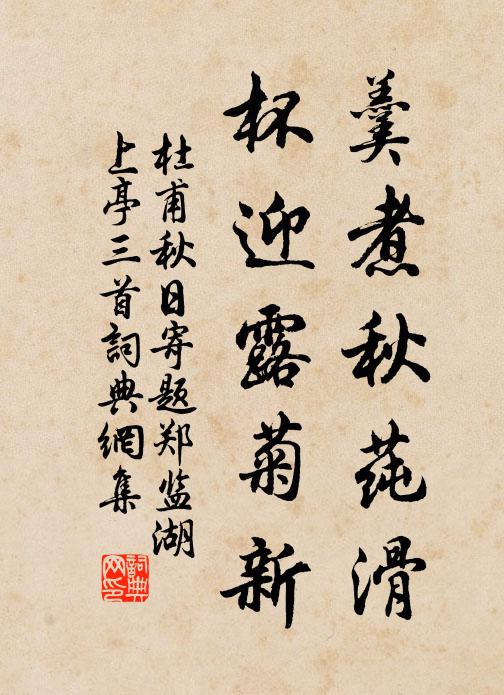 羹煮秋莼滑
杯迎露菊新
杜甫秋日寄题郑监湖
上亭三首詞典網集
詞典
网印